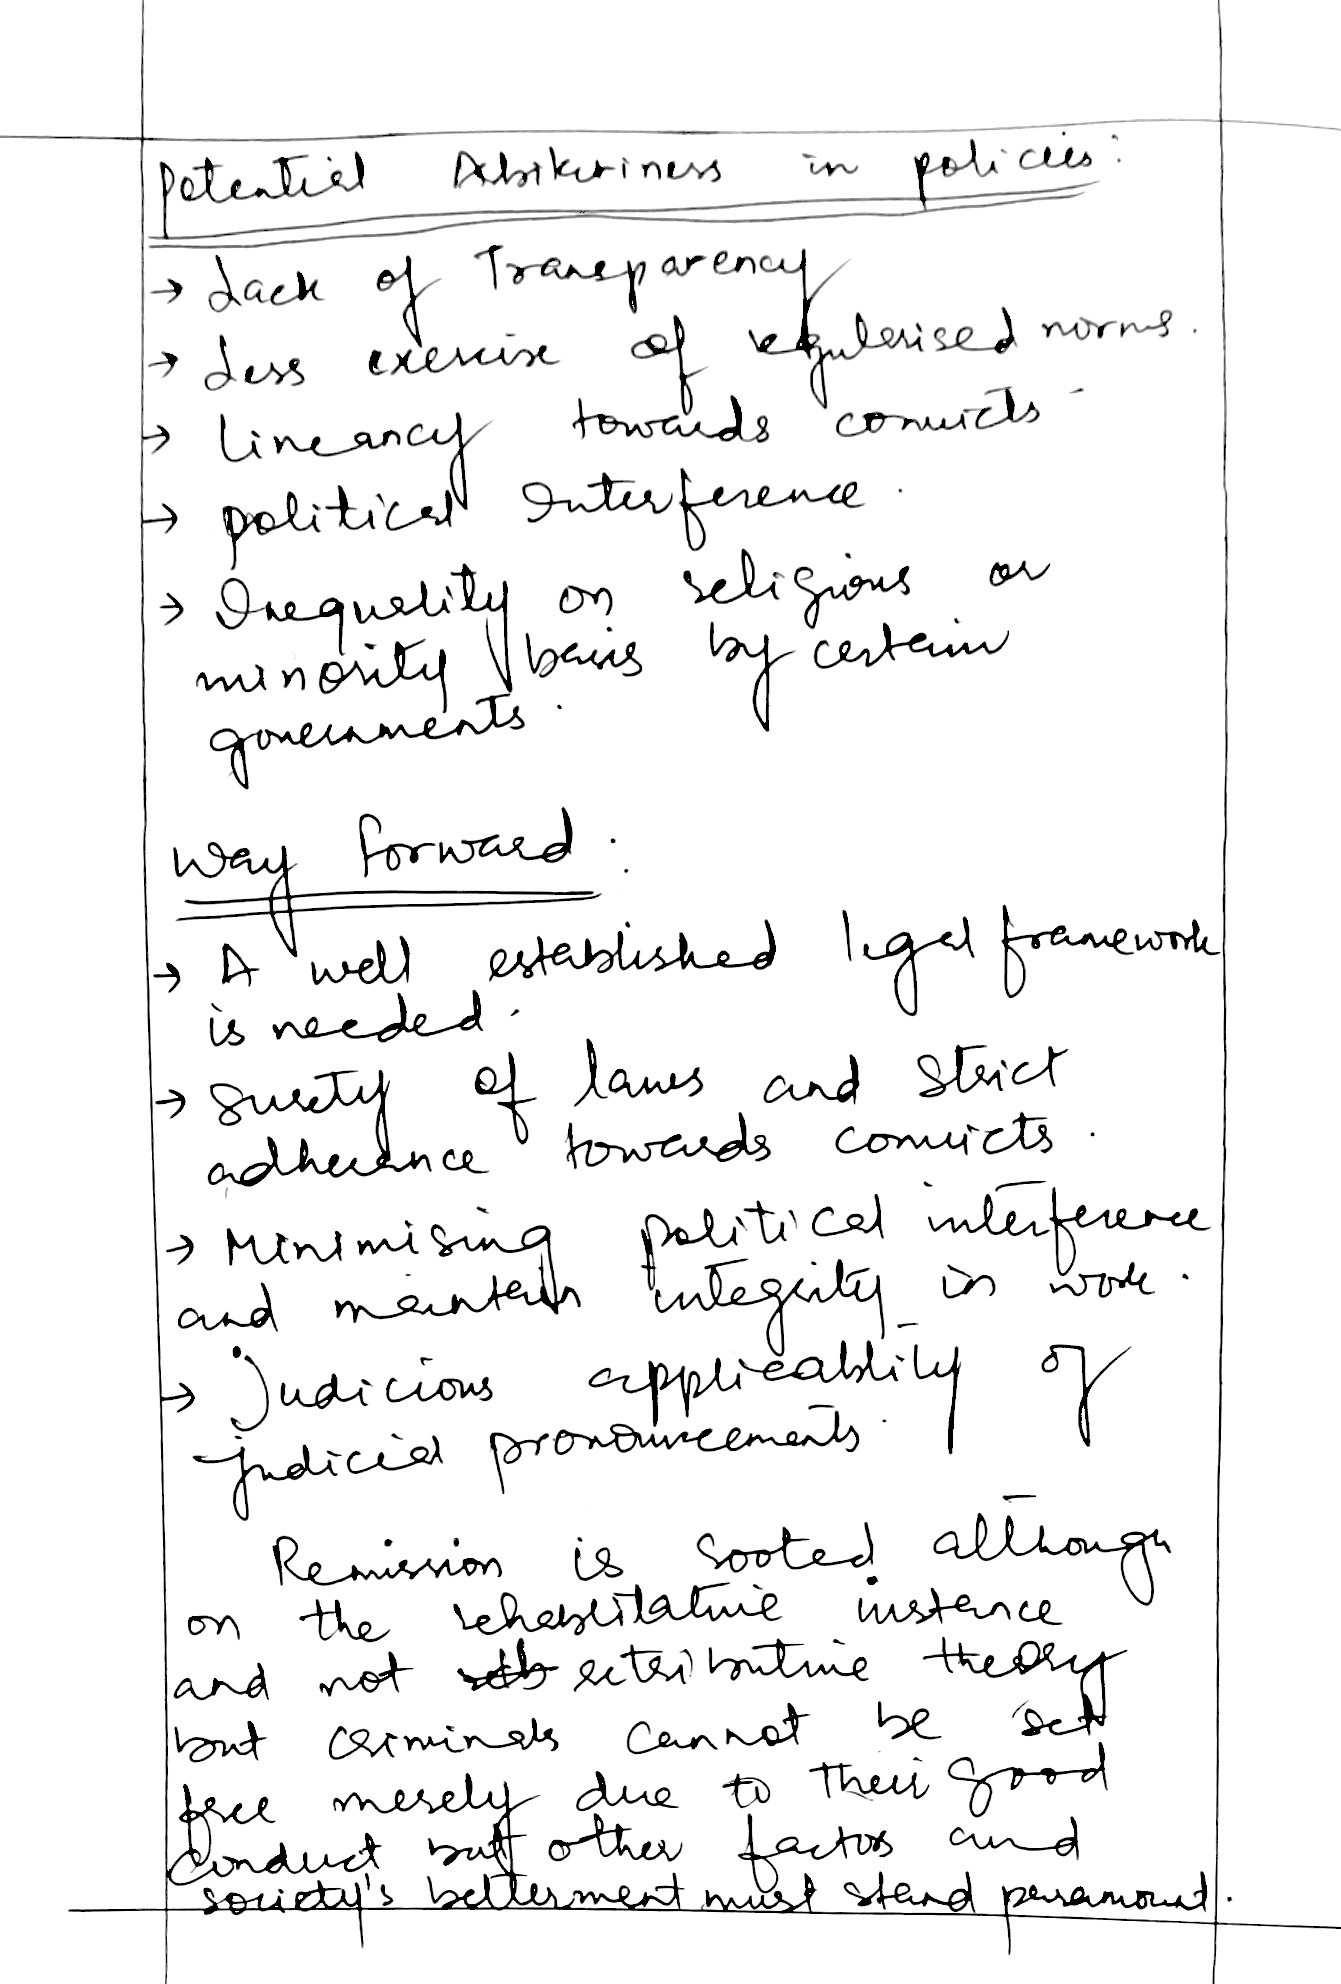 Potential Arbikeriness in policies:
→ Lack of Transparency
→ Less exercise of regularised norms.
→ lineancy towards convicts
→ political Interference.
→ Inequality on religious or
minority basis by certain
governments.
Way forward:
→ A well established legal framework
is needed.
→ Surety of laws and strict
adherence towards convicts.
→ Minimising political interference
and maintain integrity in work.
→ Judicious applicablity of
judicial pronouncements.
Remission is sooted although
on the rehabilitative instance
and not retributive theory
but criminals cannot be set
free merely due to their good
conduct but other factors and
society's betterment must stand paramount.